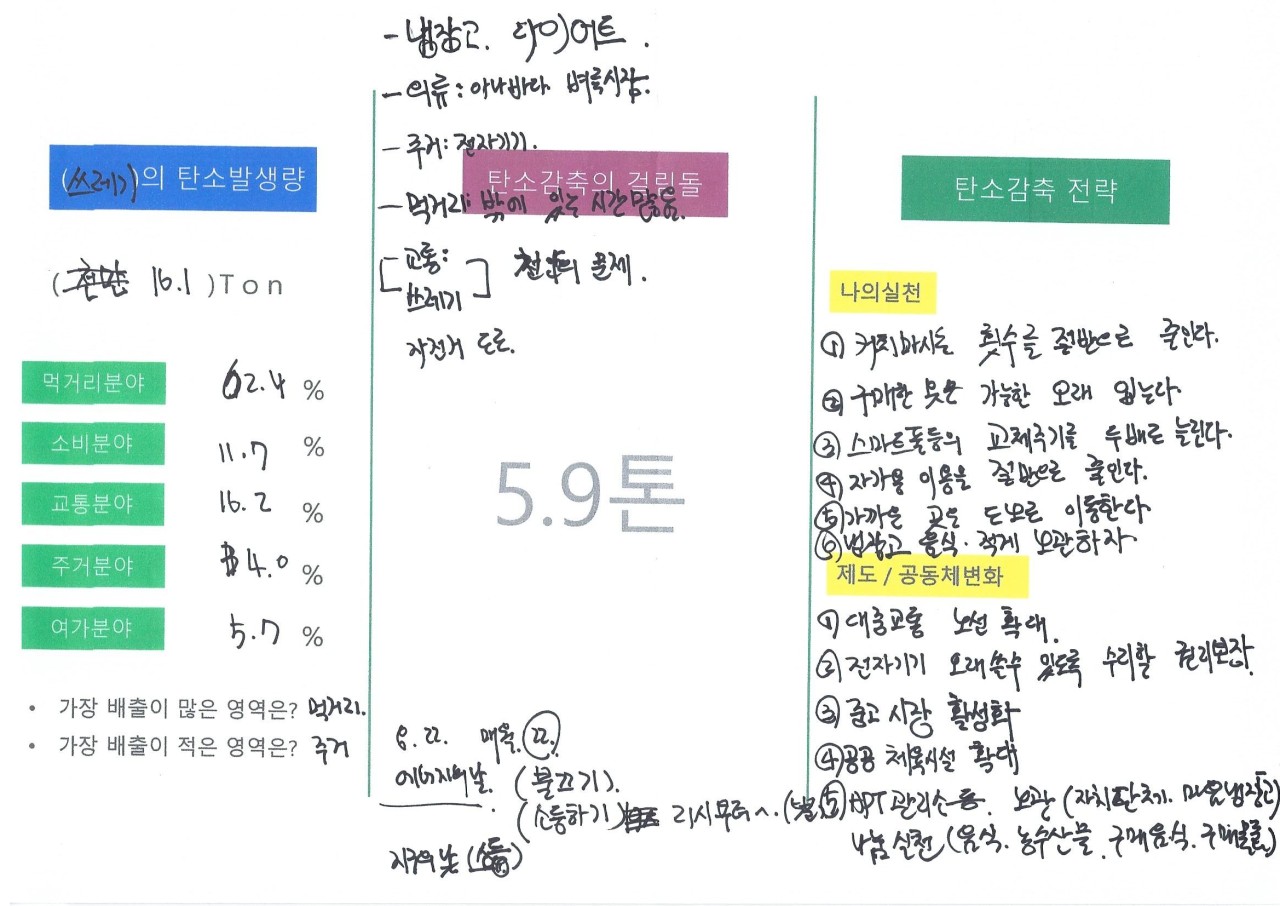 (쓰레기)의 탄소발생량
( 16.1 )Ton
먹거리분야 62.4 %
소비분야 11.7 %
교통분야 16.2 %
주거분야 4.0 %
여가분야 5.7 %
• 가장 배출이 많은 영역은? 먹거리.
• 가장 배출이 적은 영역은? 주거
- 냉장고. 다이어트.
- 의류: 아나바다 벼룩시장.
- 주거: 전자기기.
탄소감축의 걸림돌
- 먹거리: 밖에 있는 시간 많음.
- 교통:
쓰레기
문제.
자전거 도로.
5.9톤
8.22. 매월 22.
에너지의날. (불끄기).
(소등하기)
지구의 날 (소등)
탄소감축 전략
나의실천
① 커피마시는 횟수를 절반으로 줄인다.
② 구매한 옷은 가능한 오래 입는다.
③ 스마트폰등의 교체주기를 두배로 늘린다.
④ 자가용 이용을 절반으로 줄인다.
⑤ 가까운 곳은 도보로 이동한다
⑥ 냉장고 음식. 적게 보관하자
제도 / 공동체변화
① 대중교통 노선 확대.
② 전자기기 오래쓸수 있도록 수리할 권리보장.
③ 중고 시장 활성화
④ 공공 체육시설 확대
⑤ APT 관리소 등. 보관 (자치단체. 마을냉장고)
나눔실천 (음식. 농수산물. 구매음식. 구매물품)